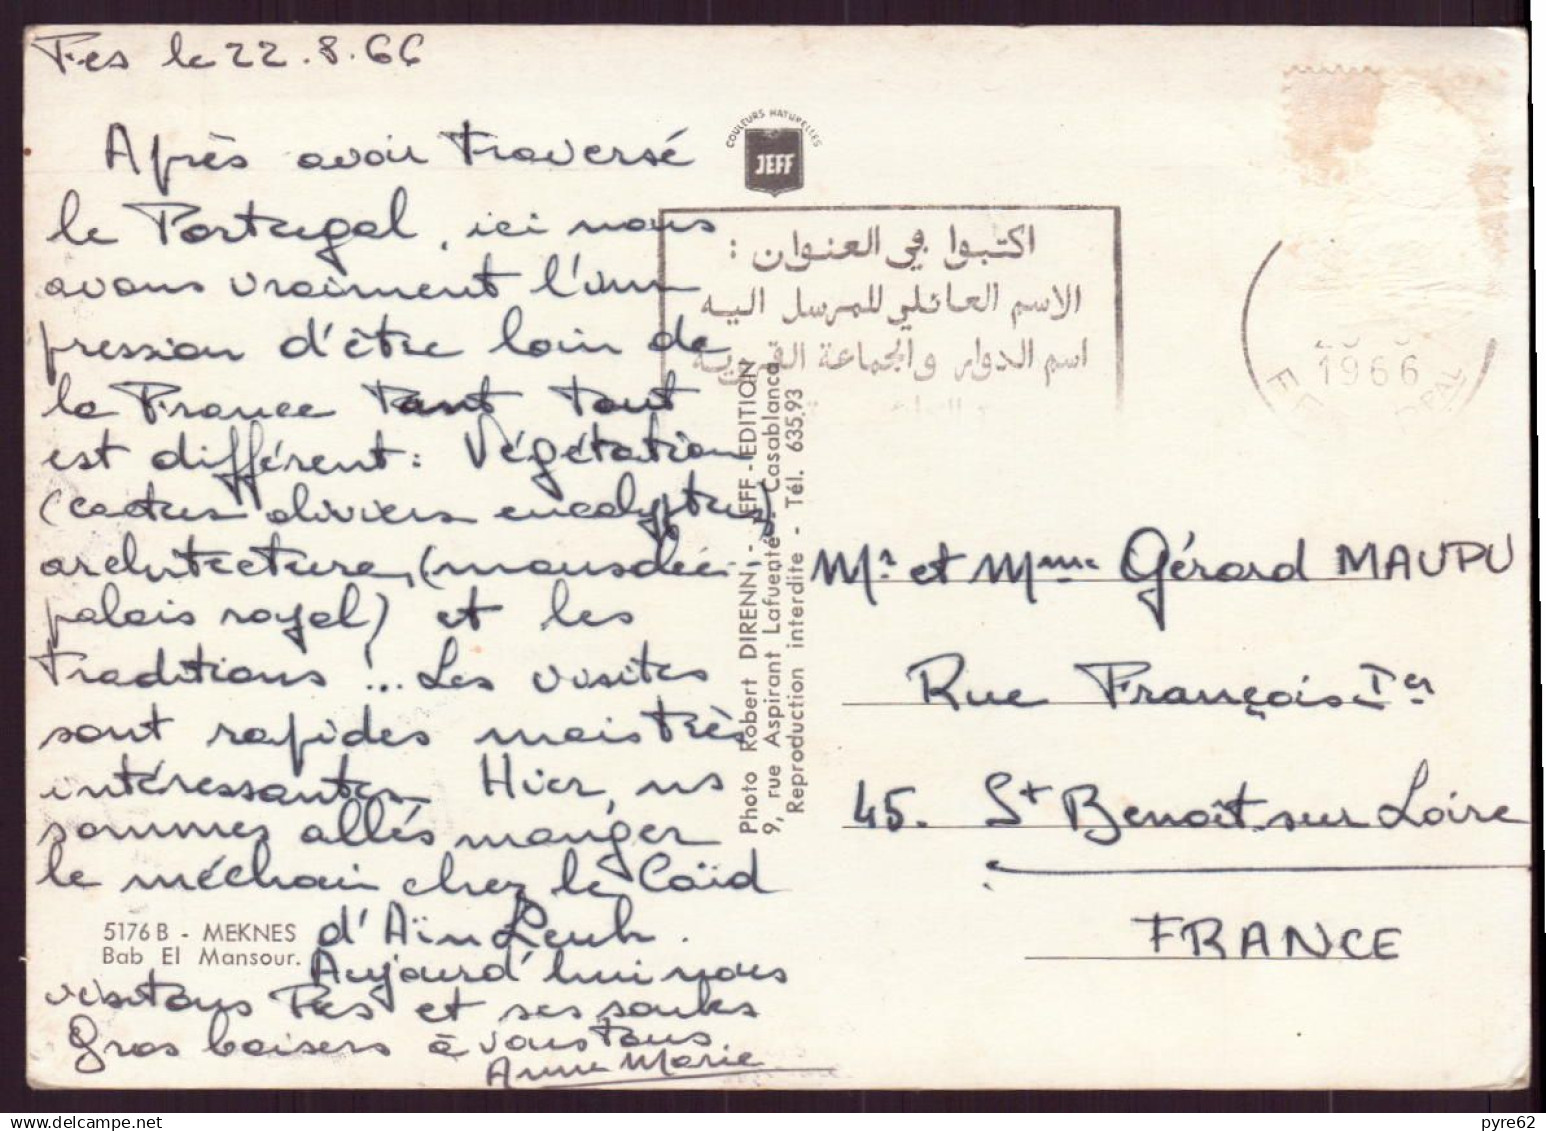 Fes le 22.8.66
Après avoir traversé
le Portugal, ici nous
avons vraiment l'im
pression d'être loin de
la France tant tout
est différent : Végétation
(cactus oliviers eucalyptus)
architecture, (mausolée,
palais royal) et les
traditions !.. Les visites
sont rapides mais très
intéressantes. Hier, ns
sommes allés manger
le méchoui chez le Caïd
d'Aïn Leuh.
Aujourd'hui nous
visitons Fes et ses souks
Gros baisers à vous tous
Anne Marie
5176 B - MEKNES
Bab El Mansour.
COULEURS NATURELLES
JEFF
Photo Robert DIRENN - JEFF - EDITION
9, rue Aspirant Lafuente - Casablanca
Reproduction interdite - Tél. 635.93
اكتبوا في العنوان :
الاسم العائلي للمرسل اليه
اسم الدوار والجماعة القروية
1966
Mr et Mme Gérard MAUPU
Rue François Ier
45. St Benoît sur Loire
FRANCE
pyre62